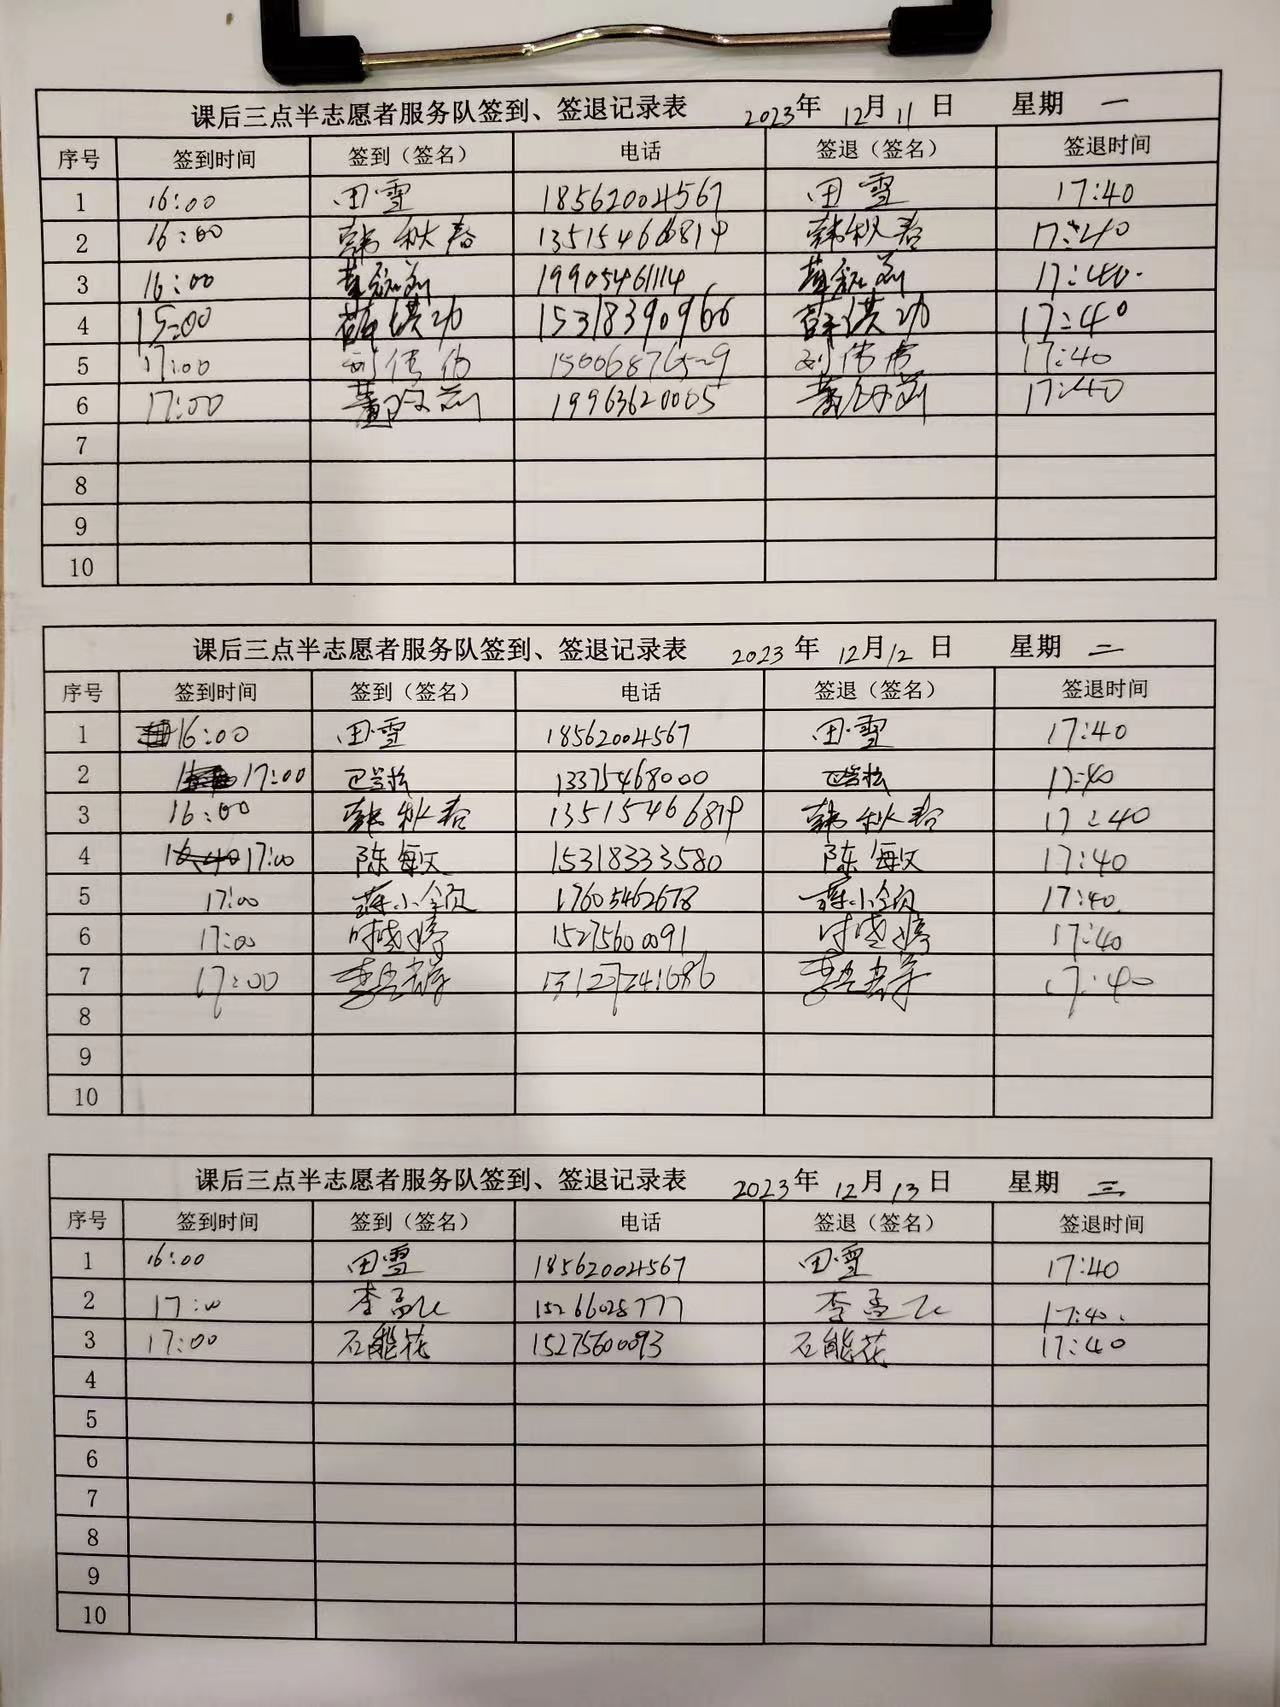 课后三点半志愿者服务队签到、签退记录表 2023年 12月11日 星期 一
序号 签到时间 签到（签名） 电话 签退（签名） 签退时间
1 16:00 田雪 18562004567 田雪 17:40
2 16:00 韩秋春 13515466819 韩秋春 17:40
3 16:00 19905461114 17:40.
4 15:00 薛洪功 15318390966 薛洪功 17:40
5 17:00 17:40
6 17:00 董 19963620005 董 17:40
7
8
9
10
课后三点半志愿者服务队签到、签退记录表 2023年 12月12日 星期 二
序号 签到时间 签到（签名） 电话 签退（签名） 签退时间
1 16:00 田雪 18562004567 田雪 17:40
2 17:00 13375468000 17:40
3 16:00 韩秋春 13515466819 韩秋春 17:40
4 17:00 陈敏 15318333580 陈敏 17:40
5 17:00 蒋小领 17605462678 蒋小领 17:40.
6 17:00 时 婷 15275600091 时 婷 17:40
7 17:00 李 群 李 群 17:40
8
9
10
课后三点半志愿者服务队签到、签退记录表 2023年 12月13日 星期 三
序号 签到时间 签到（签名） 电话 签退（签名） 签退时间
1 16:00 田雪 18562004567 田雪 17:40
2 17:00 李孟 15266028777 李孟 17:40.
3 17:00 石能花 15275600093 石能花 17:40
4
5
6
7
8
9
10